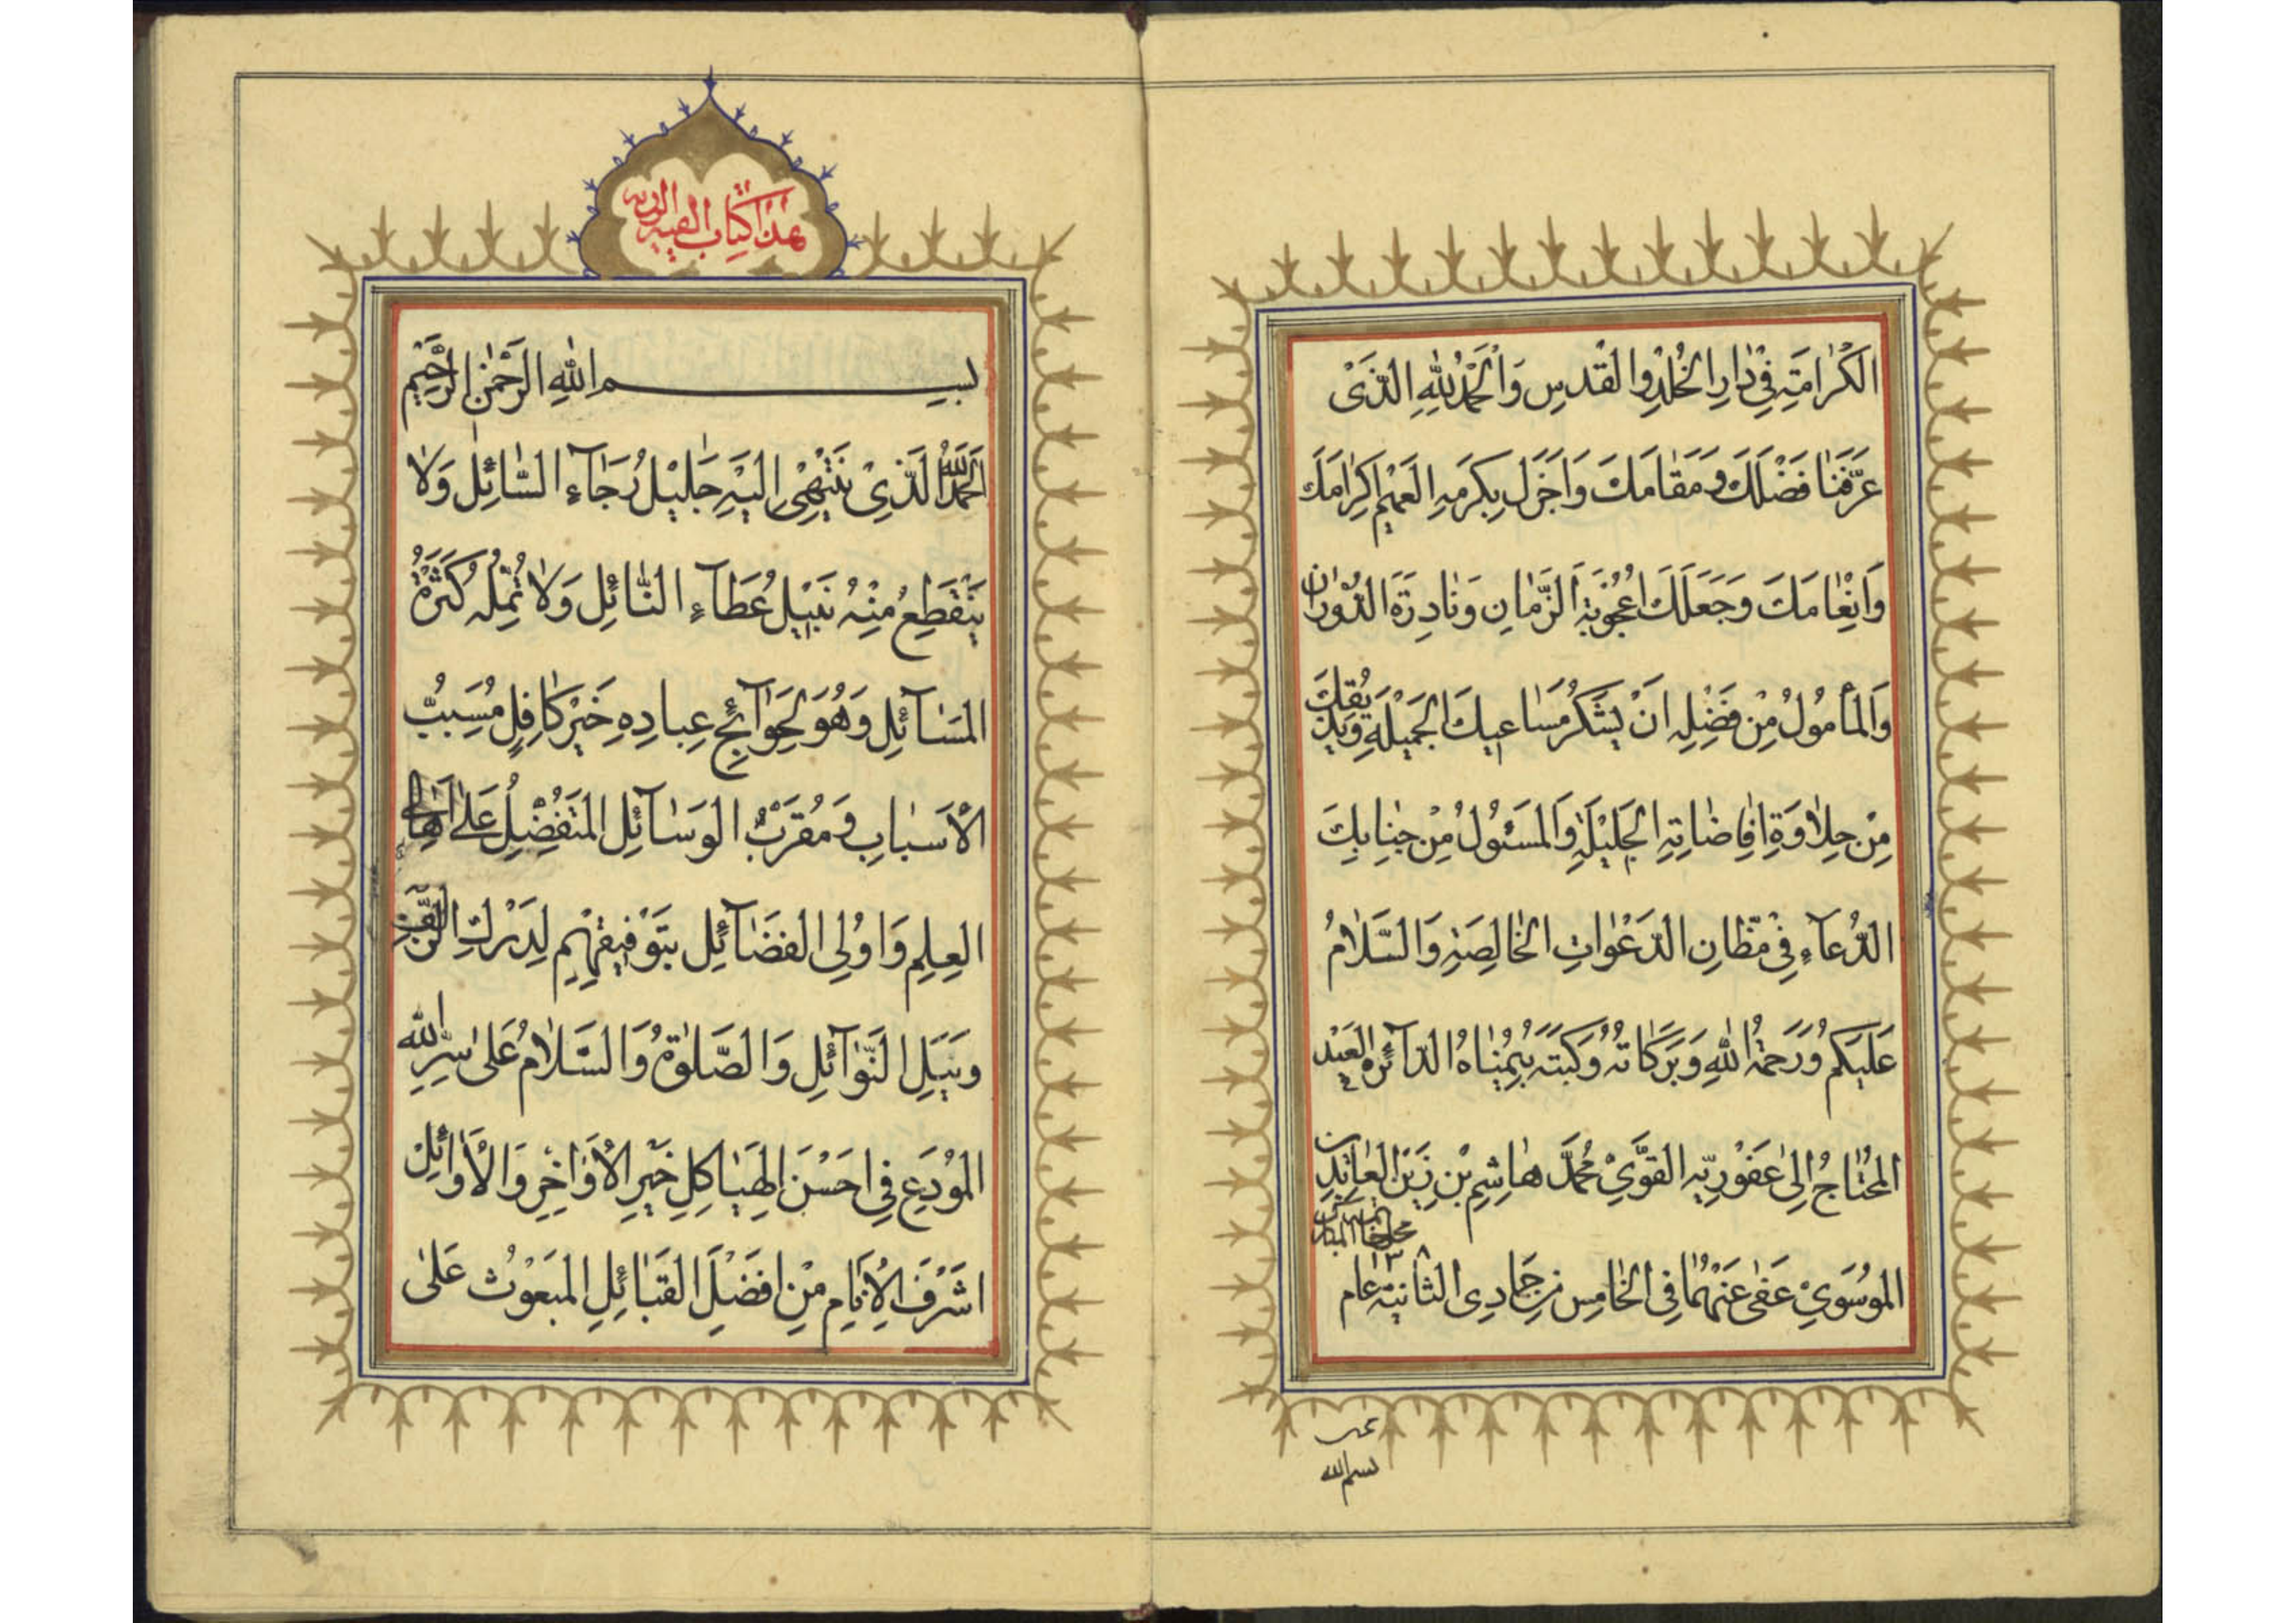 الكرامته في دار الخلد والقدس والحمد لله الذى
عرّفنا فضلك ومقامك واجزل بكرمه العميم اكرامك
وانعامك وجعلك اعجوبة الزّمان ونادرة الدّوران
والمأمول من فضله ان يشكر مساعيك الجميلة
من حلاوة افاضاته الجليلة والمسئول من جنابك
الدّعآء في مظان الدّعوات الخالصة والسّلام
عليكم ورحمة الله وبركاته وكتبه بيمناه الدّآئره العبد
المحتاج الى عفو ربّه القوّي محمّد هاشم بن زين العابدين
الموسوي عفى عنهما فى الخامس من جمادى الثانية عام
بسم الله
هذا كتاب
بسم الله الرّحمن الرّحيم
الحمد لله الّذي ينتهى اليه جليل رجآء السّائل ولا
ينقطع منه نبيل عطآء النّائل ولا تمله كثرة
المسآئل وهو لحوآئج عباده خير كافل مسبّب
الاسباب ومقرب الوسآئل المتفضل على اهالي
العلم واولى الفضآئل بتوفيقهم لدرك
ونيل النّوآئل والصّلوة والسّلام على سرّ الله
المودع في احسن الهياكل خير الاواخر والاوائل
اشرف الانام من افضل القبائل المبعوث على